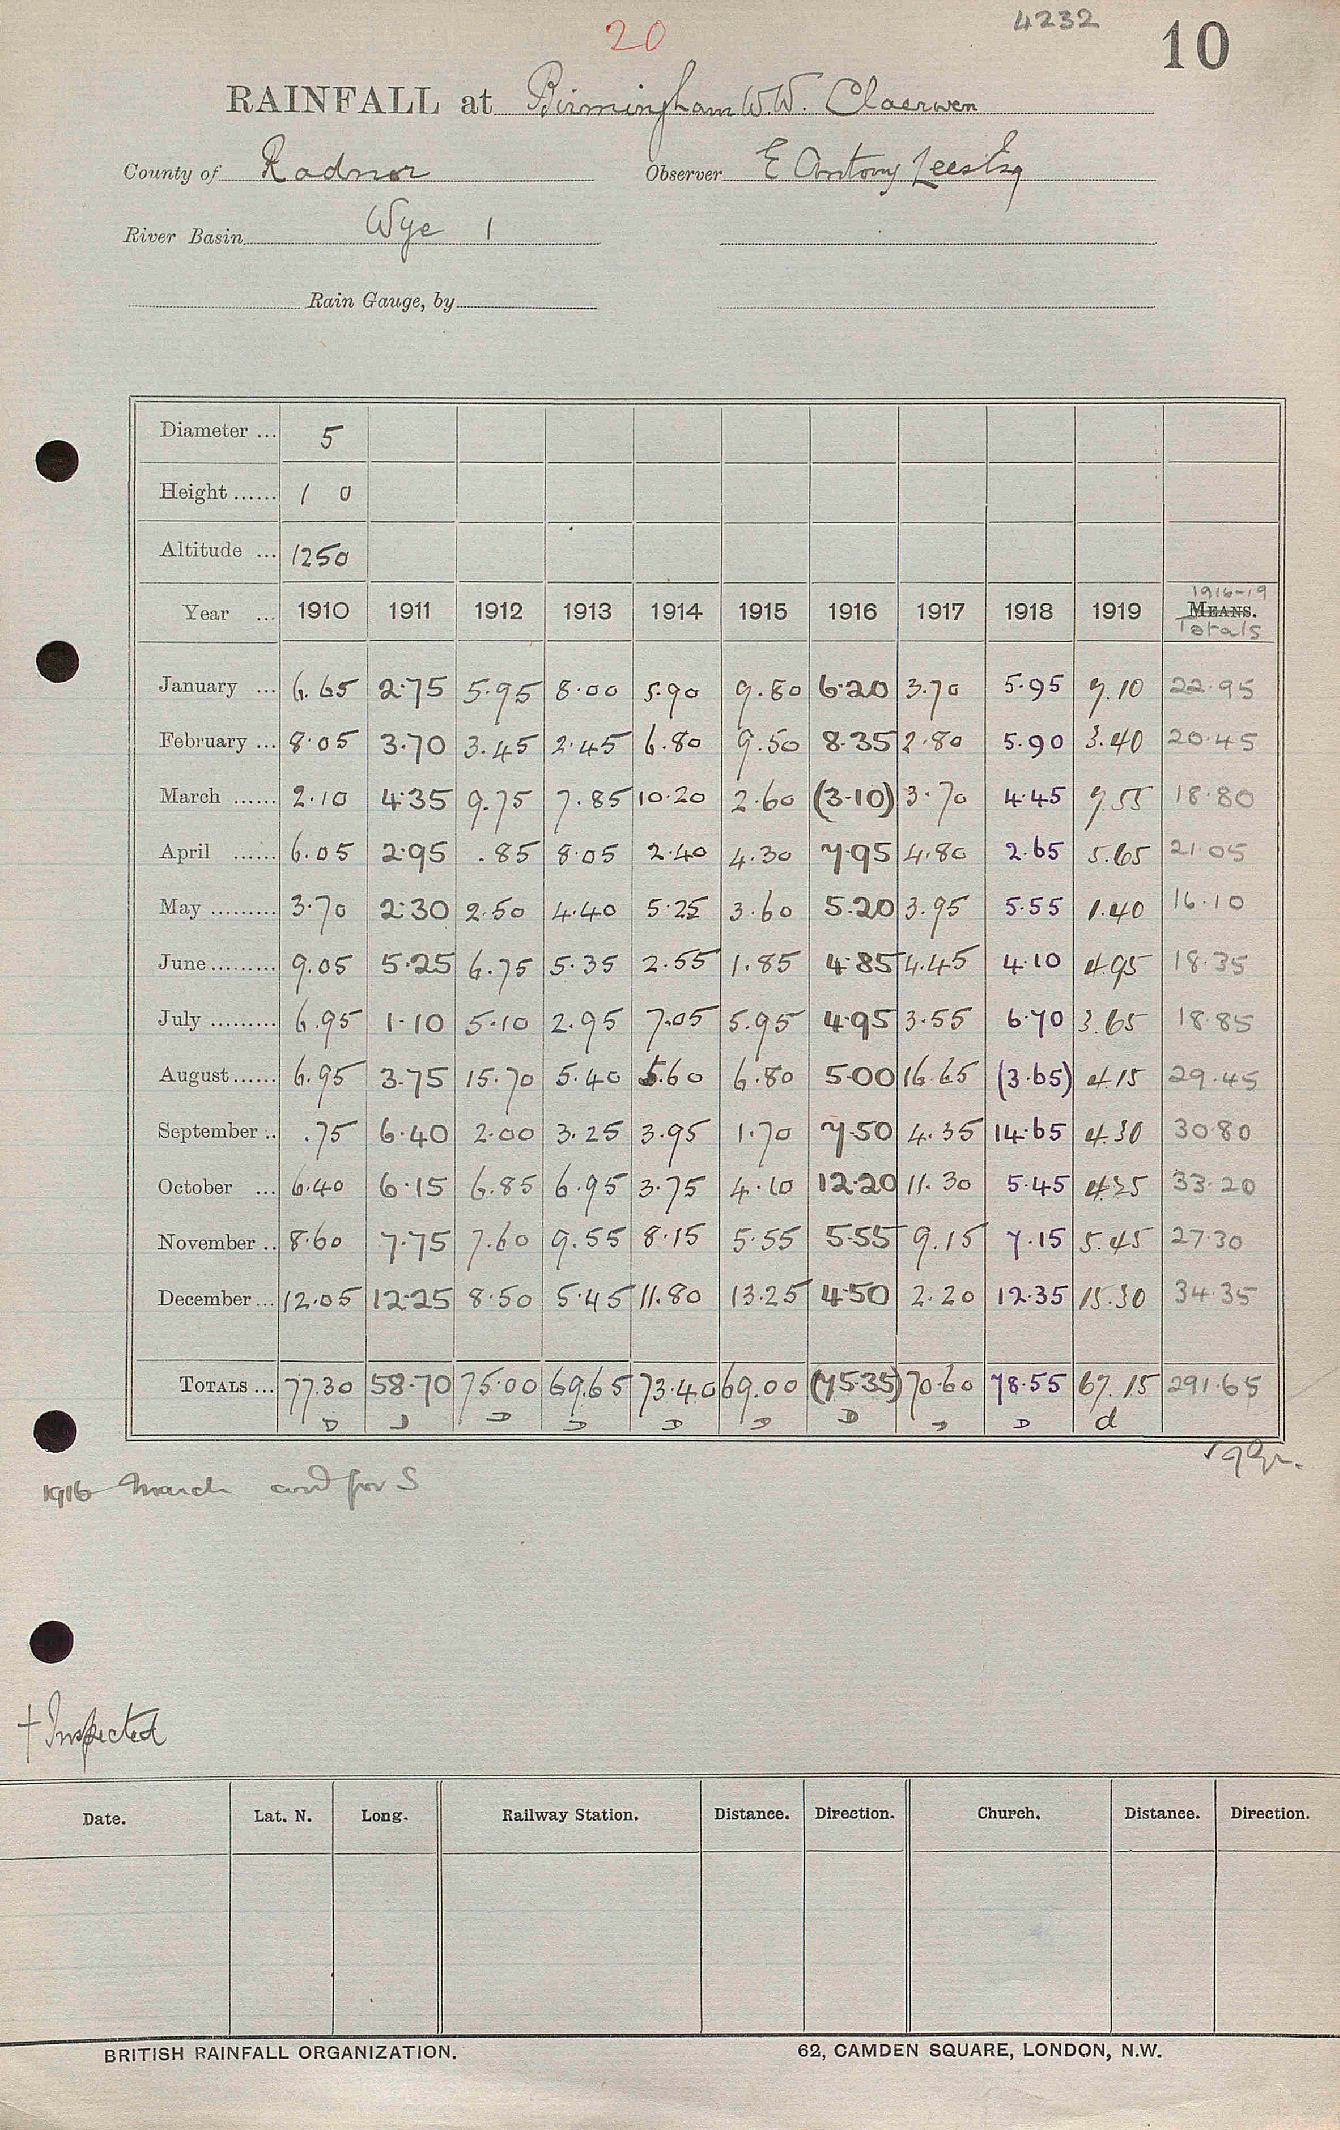 20
4232
10
RAINFALL at Birmingham W.W. Claerwen
County of Radnor Observer E Antony Lees Esq
River Basin Wye 1
Rain Gauge, by
Diameter ... 5
Height ...... 1 0
Altitude ... 1250
1916-19
Year ... 1910 1911 1912 1913 1914 1915 1916 1917 1918 1919 MEANS.
Totals
January ... 6.65 2.75 5.95 8.00 5.90 9.80 6.20 3.70 5.95 7.10 22.95
February ... 8.05 3.70 3.45 2.45 6.80 9.50 8.35 2.80 5.90 3.40 20.45
March ...... 2.10 4.35 9.75 7.85 10.20 2.60 (3.10) 3.70 4.45 7.55 18.80
April ...... 6.05 2.95 .85 8.05 2.40 4.30 7.95 4.80 2.65 5.65 21.05
May ......... 3.70 2.30 2.50 4.40 5.25 3.60 5.20 3.95 5.55 1.40 16.10
June ......... 9.05 5.25 6.75 5.35 2.55 1.85 4.85 4.45 4.10 4.95 18.35
July ......... 6.95 1.10 5.10 2.95 7.05 5.95 4.95 3.55 6.70 3.65 18.85
August ...... 6.95 3.75 15.70 5.40 5.60 6.80 5.00 16.65 (3.65) 4.15 29.45
September .. .75 6.40 2.00 3.25 3.95 1.70 7.50 4.35 14.65 4.30 30.80
October ... 6.40 6.15 6.85 6.95 3.75 4.10 12.20 11.30 5.45 4.25 33.20
November .. 8.60 7.75 7.60 9.55 8.15 5.55 5.55 9.15 7.15 5.45 27.30
December ... 12.05 12.25 8.50 5.45 11.80 13.25 4.50 2.20 12.35 15.30 34.35
TOTALS ... 77.30 58.70 75.00 69.65 73.40 69.00 (75.35) 70.60 78.55 67.15 291.65
D D D D D D D D D d
1916 March and for S
† Inspected
Date. Lat. N. Long. Railway Station. Distance. Direction. Church. Distance. Direction.
BRITISH RAINFALL ORGANIZATION. 62, CAMDEN SQUARE, LONDON, N.W.